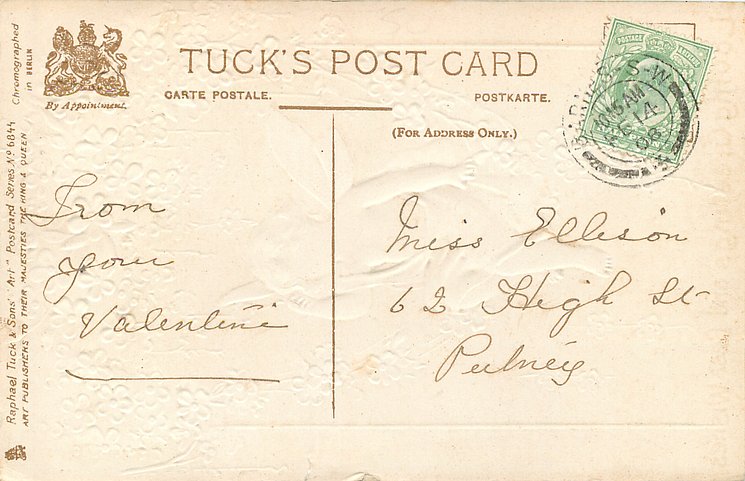 TUCK'S POST CARD
CARTE POSTALE.
POSTKARTE.
By Appointment.
(FOR ADDRESS ONLY.)
Chromographed
in BERLIN
Raphael Tuck & Sons' "Art" Postcard Series No 6844
ART PUBLISHERS TO THEIR MAJESTIES THE KING & QUEEN
POSTAGE
BARNES. S-W
FE 14
08
From
your
Valentine
Miss Ellison
62 High St
Putney